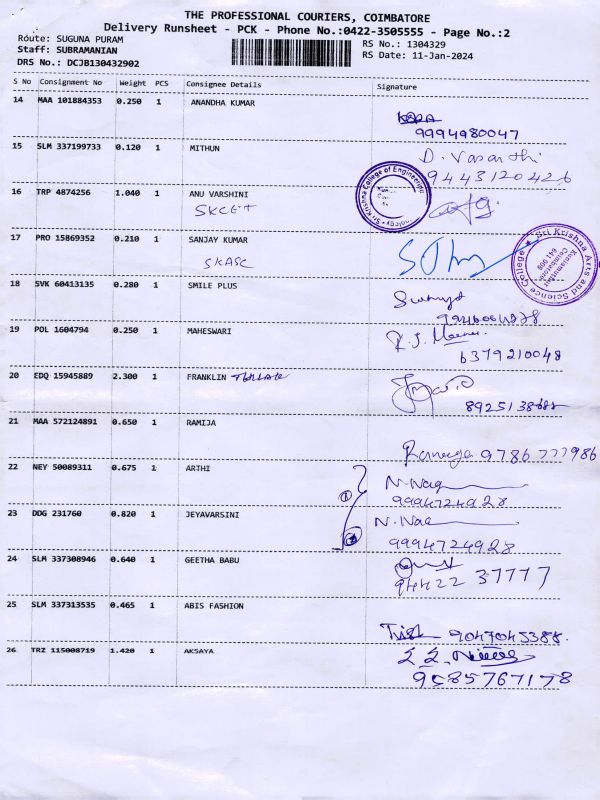 THE PROFESSIONAL COURIERS, COIMBATORE
Delivery Runsheet - PCK - Phone No.:0422-3505555 - Page No.:2
Route: SUGUNA PURAM
RS No.: 1304329
Staff: SUBRAMANIAN
RS Date: 11-Jan-2024
DRS No.: DCJB130432902
S No Consignment No Weight PCS Consignee Details Signature
14 MAA 101884353 0.250 1 ANANDHA KUMAR
9994980047
15 SLM 337199733 0.120 1 MITHUN D. Vasanthi
9443120426
16 TRP 4874256 1.040 1 ANU VARSHINI
SKCET
Sri Krishna College of Engineering
17 PRO 15869352 0.210 1 SANJAY KUMAR
SKASC
Sri Krishna Arts and Science College
Kuniamuthur
Coimbatore
641 008
18 SVK 60413135 0.280 1 SMILE PLUS
19 POL 1604794 0.250 1 MAHESWARI
6379210048
20 EDQ 15945889 2.300 1 FRANKLIN
21 MAA 572124891 0.650 1 RAMIJA
9786777986
22 NEY 50089311 0.675 1 ARTHI N. Nag
9994724928
23 DDG 231760 0.820 1 JEYAVARSINI N. Nag
9994724928
24 SLM 337308946 0.640 1 GEETHA BABU
94422 37777
25 SLM 337313535 0.465 1 ABIS FASHION
9047045388.
26 TRZ 115008719 1.420 1 AKSAYA
9585767178